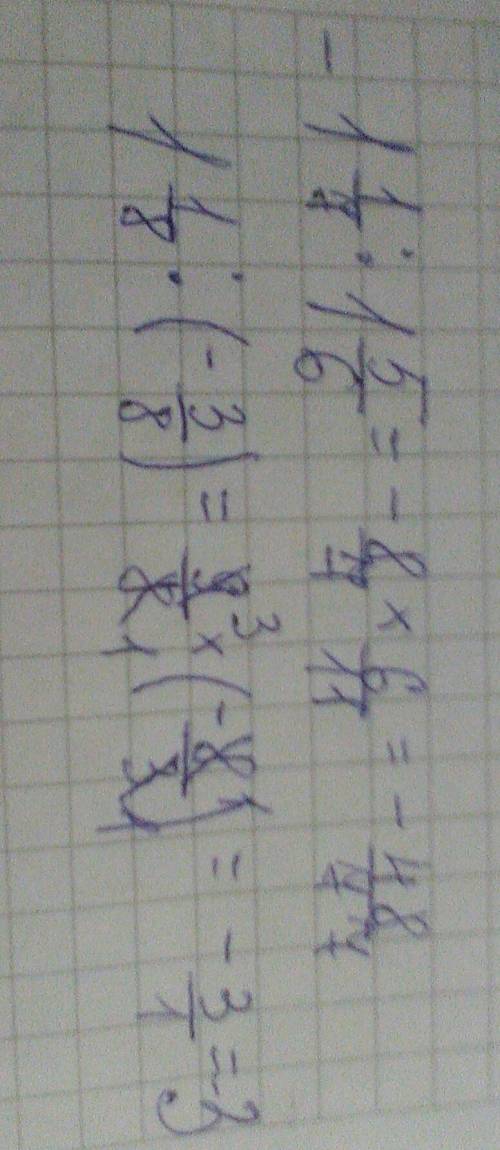 - 1 1/7 : 1 5/6 = - 8/7 × 6/11 = - 48/77
1 1/8 : (- 3/8) = 9³/8₁ × (- 8¹/3₁) = - 3/1 = -3